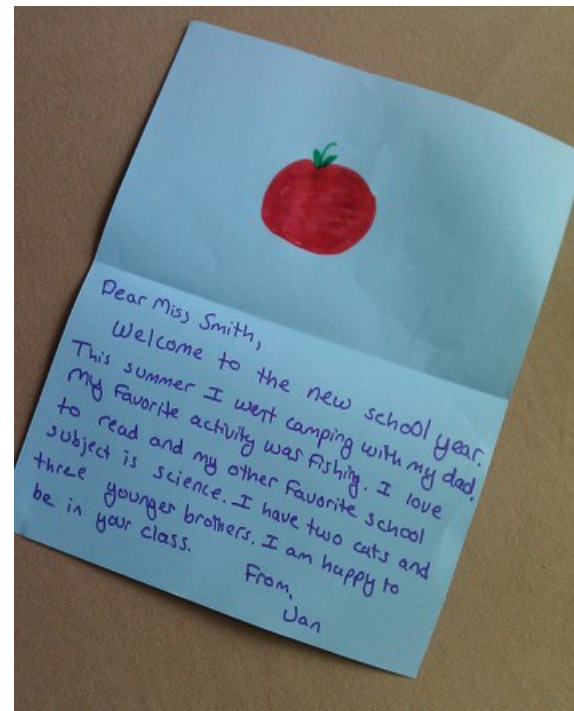 Dear Miss Smith,
Welcome to the new school year.
This summer I went camping with my dad.
My favorite activity was fishing. I love
to read and my other favorite school
subject is science. I have two cats and
three younger brothers. I am happy to
be in your class.
From,
Jan